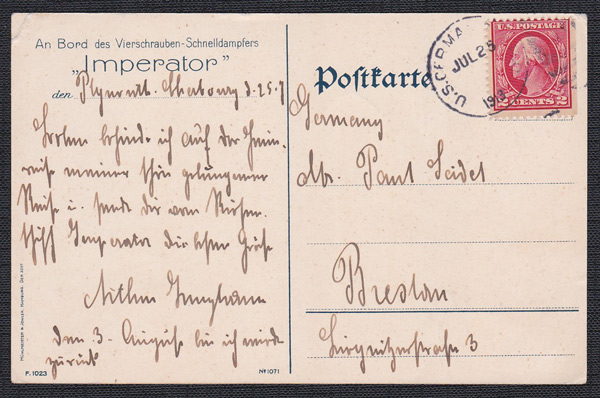 An Bord des Vierschrauben-Schnelldampfers
„Imperator"
den Plymouth. Cherbourg d. 25. 7
Soeben befinde ich auf der Heim-
reise meiner schön gelungenen
Reise u. sende dir vom Riesen-
schiff Imperator die besten Grüße
den 3. August bin ich wieder
zurück
Postkarte
Germany
Mr. Paul Seidel
Breslau
Liegnitzerstraße 3
U.S. GERMA
JUL 25
U.S. POSTAGE
2 CENTS 2
MÜHLMEISTER & JOHLER, HAMBURG.
F. 1023
No 1071